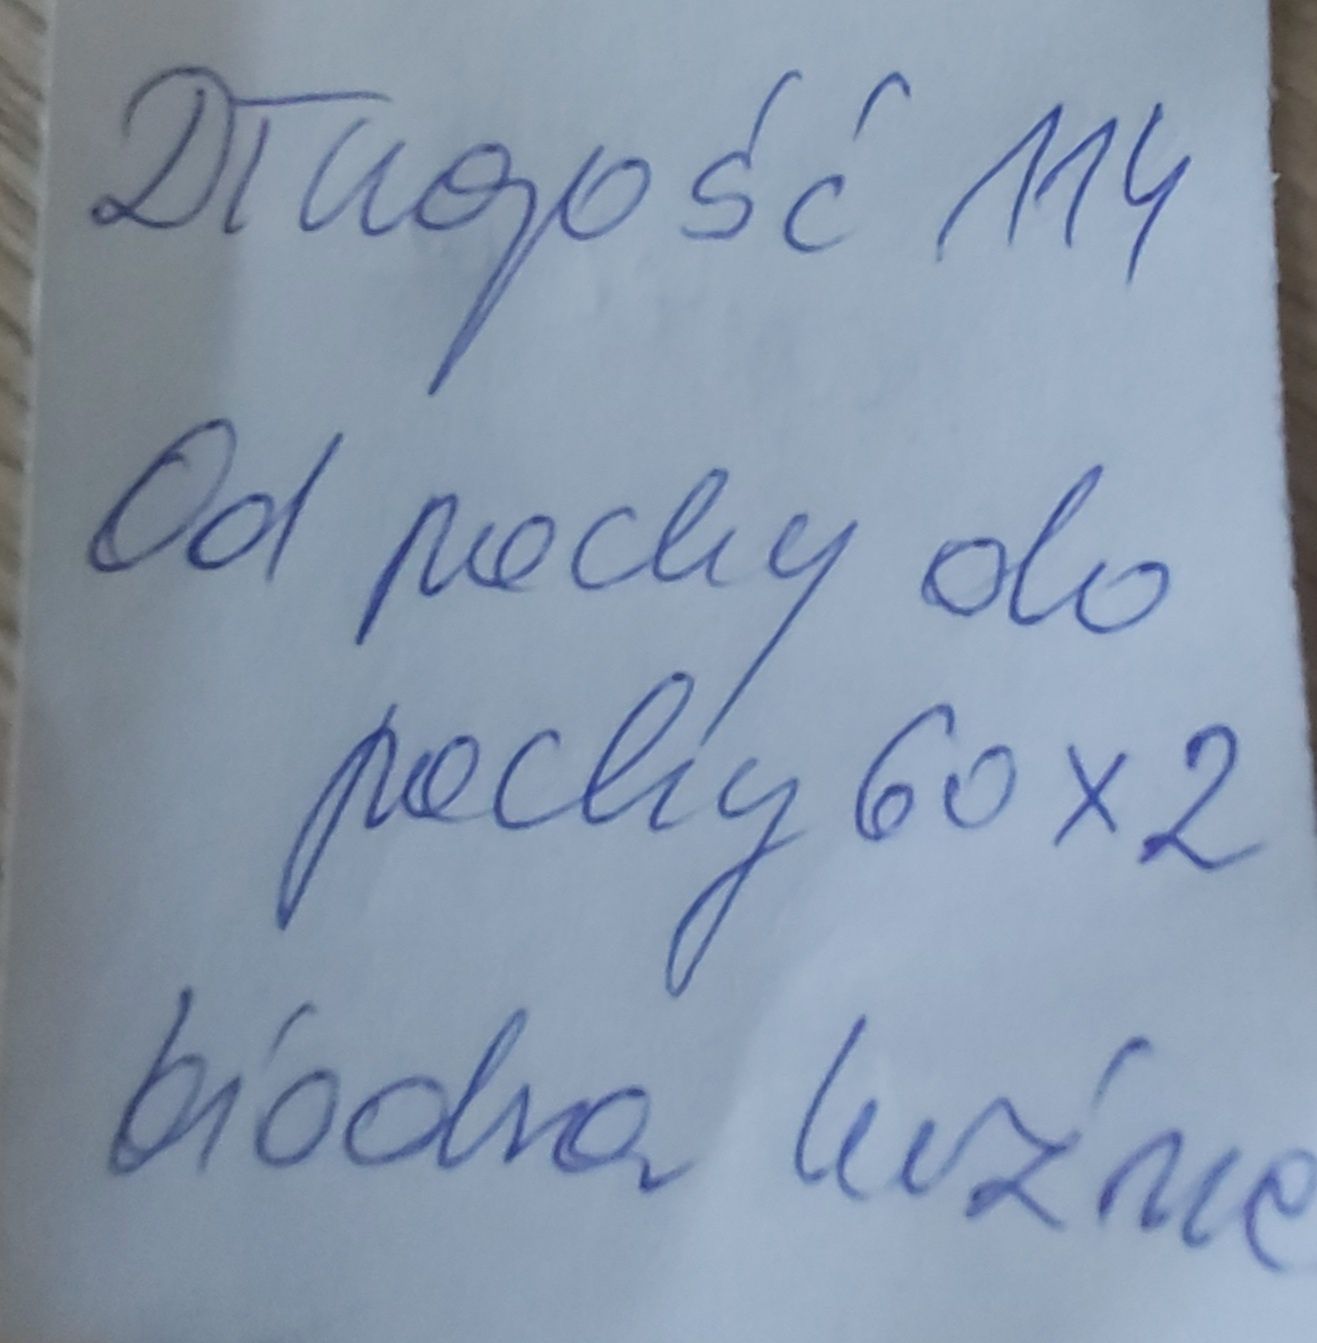 Długość 114
Od pachy do
pachy 60 x 2
biodra luźne